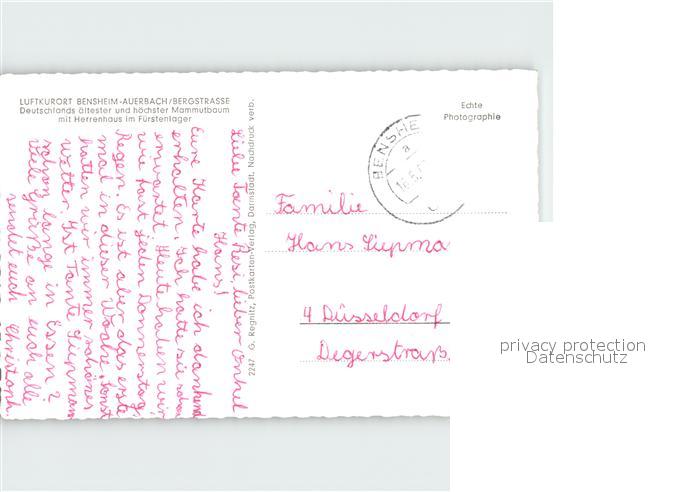 LUFTKURORT BENSHEIM-AUERBACH/BERGSTRASSE
Deutschlands ältester und höchster Mammutbaum
mit Herrenhaus im Fürstenlager
Liebe Tante Resi, lieber Onkel
Hans!
Eure Karte habe ich dankend
erhalten. Ich hatte sie schon
erwartet. Heute haben wir
wie fast jeden Donnerstag,
Regen. Es ist aber das erste
mal in dieser Woche, sonst
hatten wir immer schönes
Wetter. Ist Tante Lupman
schon lange in Essen?
Viele Grüße an euch alle
sendet euch Christoph
2247 G. Regnitz, Postkarten-Verlag, Darmstadt, Nachdruck verb.
Echte
Photographie
BENSHE
a
Familie
Hans Lupma
4 Düsseldorf
Degerstraß
privacy protection
Datenschutz